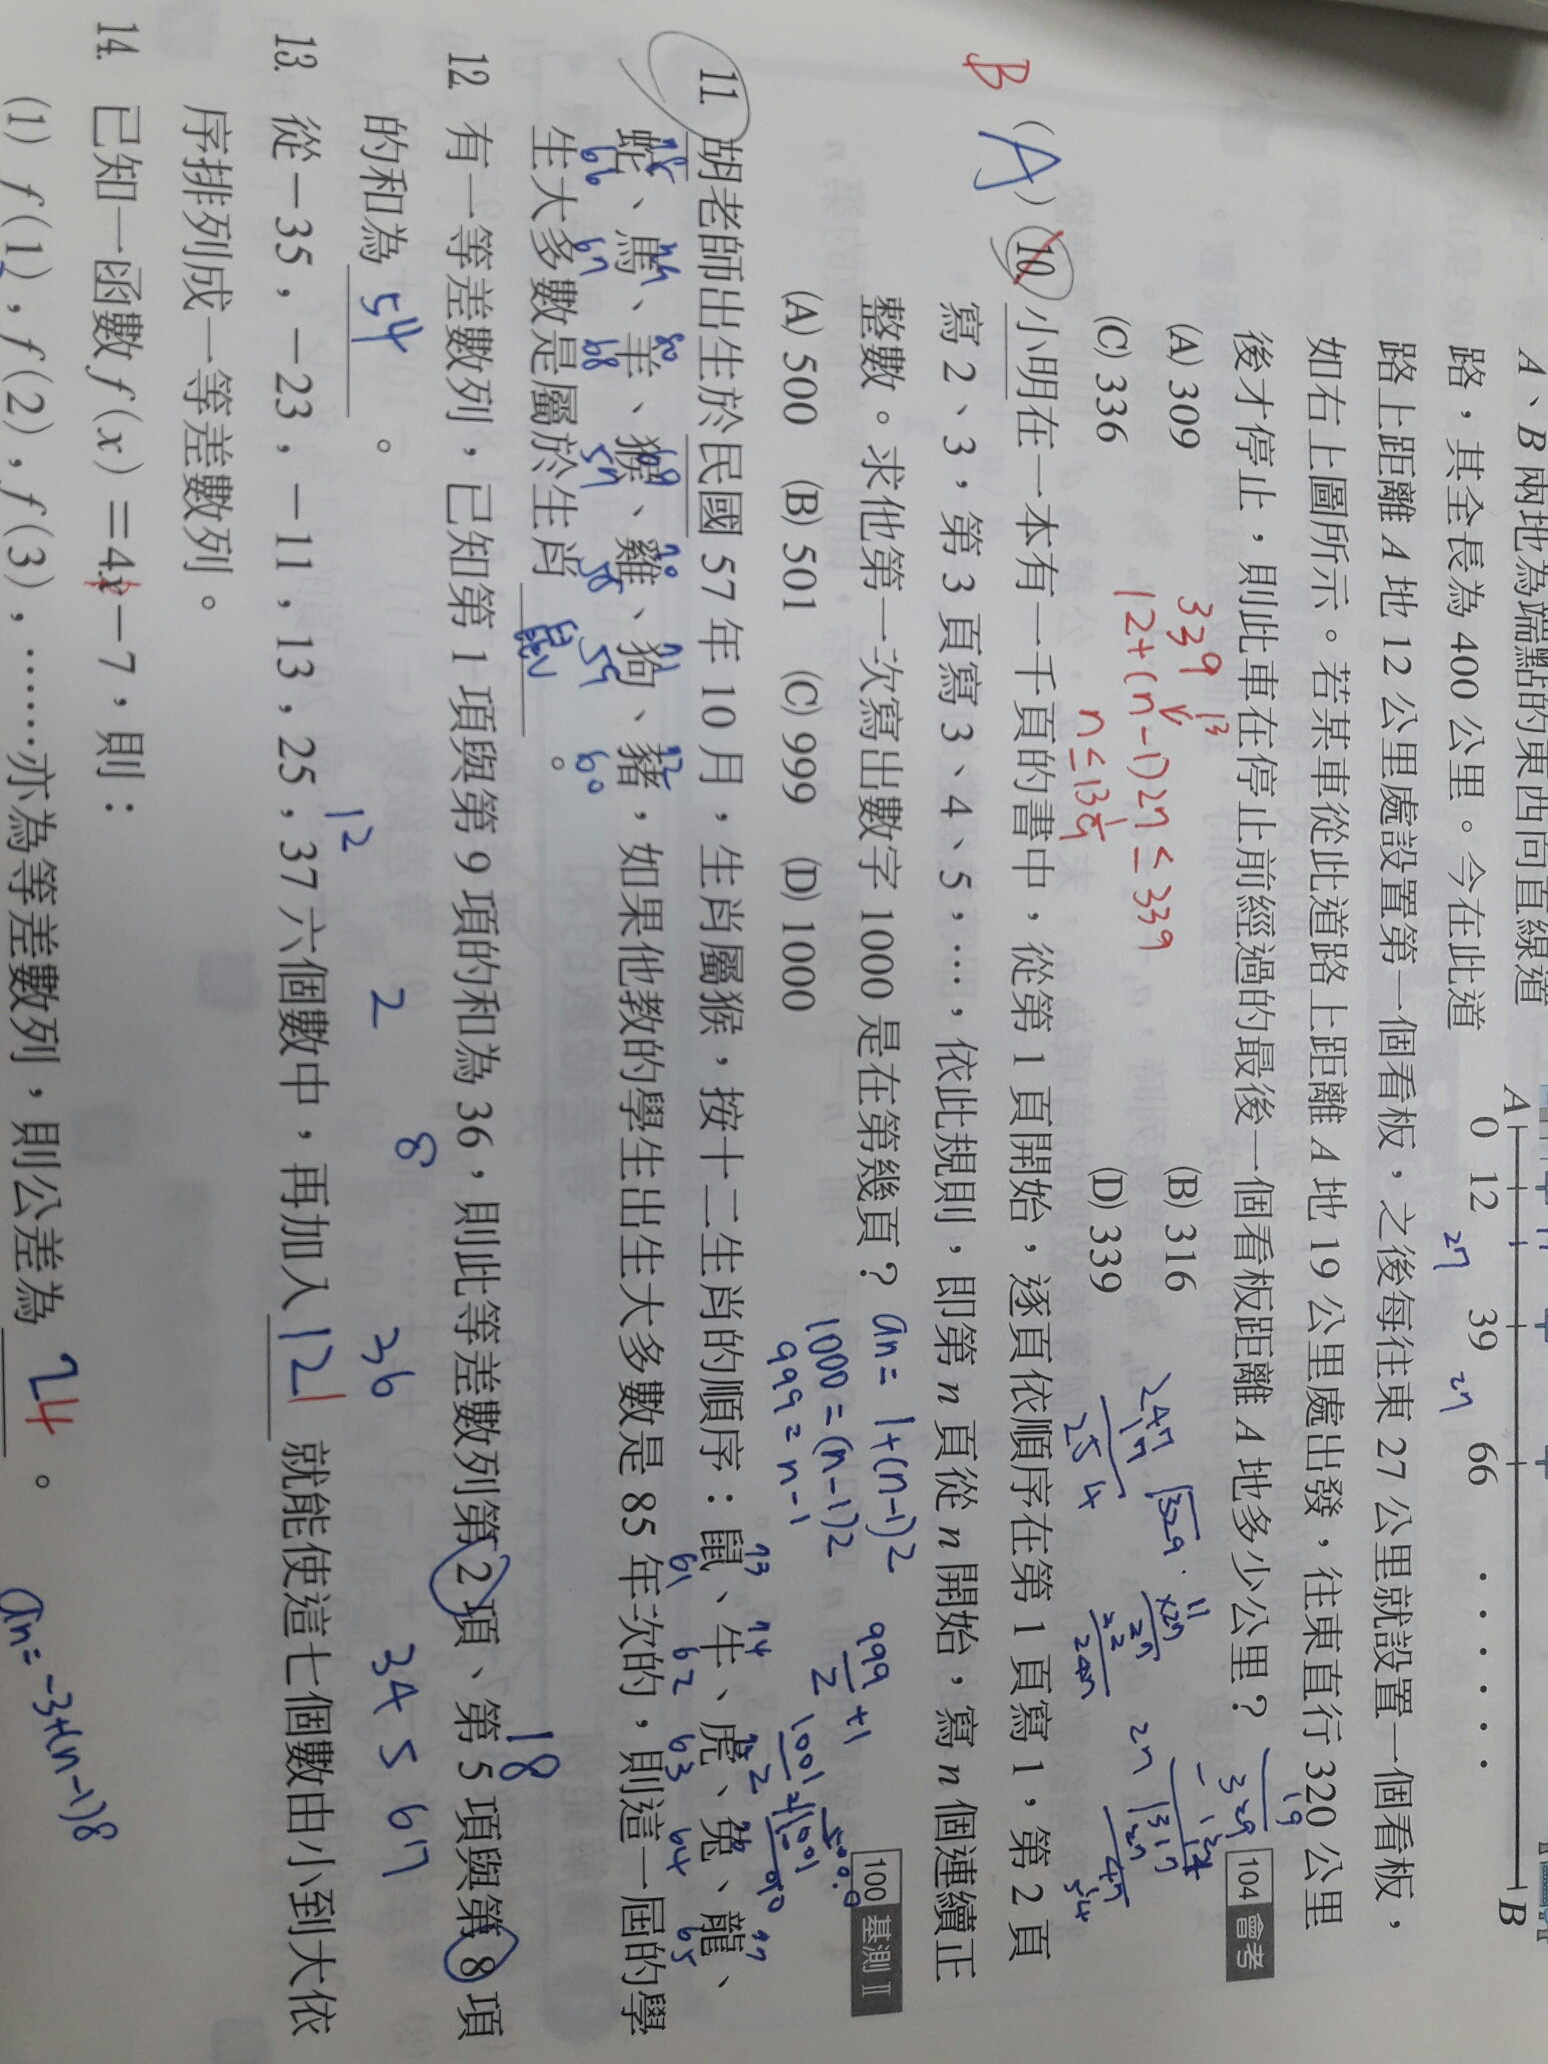 A、B兩地為端點的東西向直線道
路，其全長為400公里。今在此道
A 0 12 39 66 ‧‧‧‧‧‧ B
27 27
路上距離A地12公里處設置第一個看板，之後每往東27公里就設置一個看板，
如右上圖所示。若某車從此道路上距離A地19公里處出發，往東直行320公里
後才停止，則此車在停止前經過的最後一個看板距離A地多少公里？ 104會考
(A) 309 (B) 316
(C) 336 (D) 339
339
12+(n-1)27≤339
B
(A) 10. 小明在一本有一千頁的書中，從第1頁開始，逐頁依順序在第1頁寫1，第2頁
寫2、3，第3頁寫3、4、5，…，依此規則，即第n頁從n開始，寫n個連續正
整數。求他第一次寫出數字1000是在第幾頁？ 100基測II
an=1+(n-1)2
1000=(n-1)2
999=n-1
999/2+1
(A) 500 (B) 501 (C) 999 (D) 1000
11. 胡老師出生於民國57年10月，生肖屬猴，按十二生肖的順序：鼠、牛、虎、兔、龍、
61 62 63 64 65
蛇、馬、羊、猴、雞、狗、豬，如果他教的學生出生大多數是85年次的，則這一屆的學
66 67 68 57 58 59 60
生大多數是屬於生肖 鼠 。
12. 有一等差數列，已知第1項與第9項的和為36，則此等差數列第2項、第5項與第8項
18
的和為 54 。
2 8 36 34 5 67
13. 從－35，－23，－11，13，25，37六個數中，再加入 1 就能使這七個數由小到大依
12
序排列成一等差數列。
14. 已知一函數f(x)＝4x－7，則：
(1) f(1)，f(2)，f(3)，……亦為等差數列，則公差為 4 。
an=-3+(n-1)8